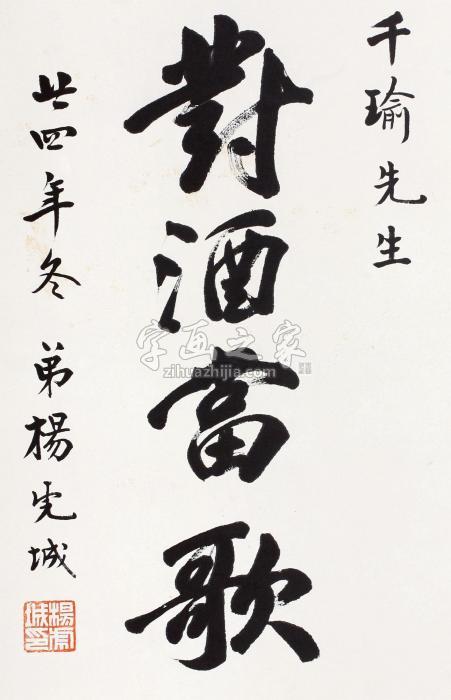 千瑜先生
對酒當歌
廿四年冬 弟楊虎城
楊虎城印
字画之家
zihuazhijia.com